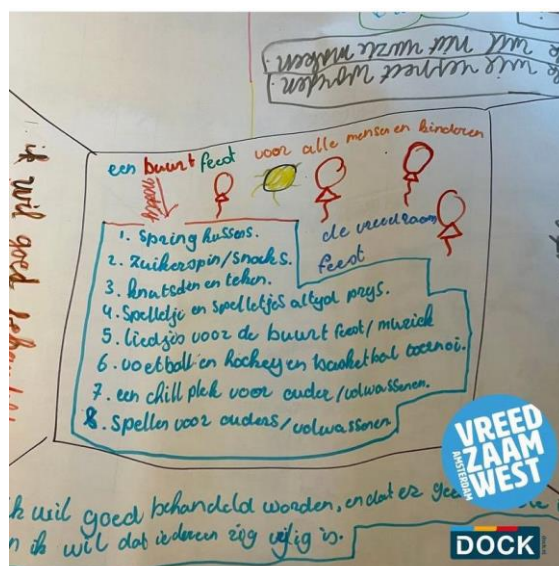 wie verpest worden.
wil niet ruzie maken.
ik wil goed
een buurt feest voor alle mensen en kinderen
de vreedzaam
feest
1. Spring kussens.
2. Zuikerspin/snacks.
3. knutselen en teken.
4. Spelletje en spelletjes altyd prys.
5. liedjes voor de buurt feest/muziek
6. voetball en hockey en basketbal toernoi.
7. een chill plek voor ouder/volwassenen.
8. Spellen voor ouders/volwassenen
ik wil goed behandeld worden, en dat er
en ik wil dat iedereen zig vijlig is.
VREED
ZAAM
WEST
AMSTERDAM
DOCK